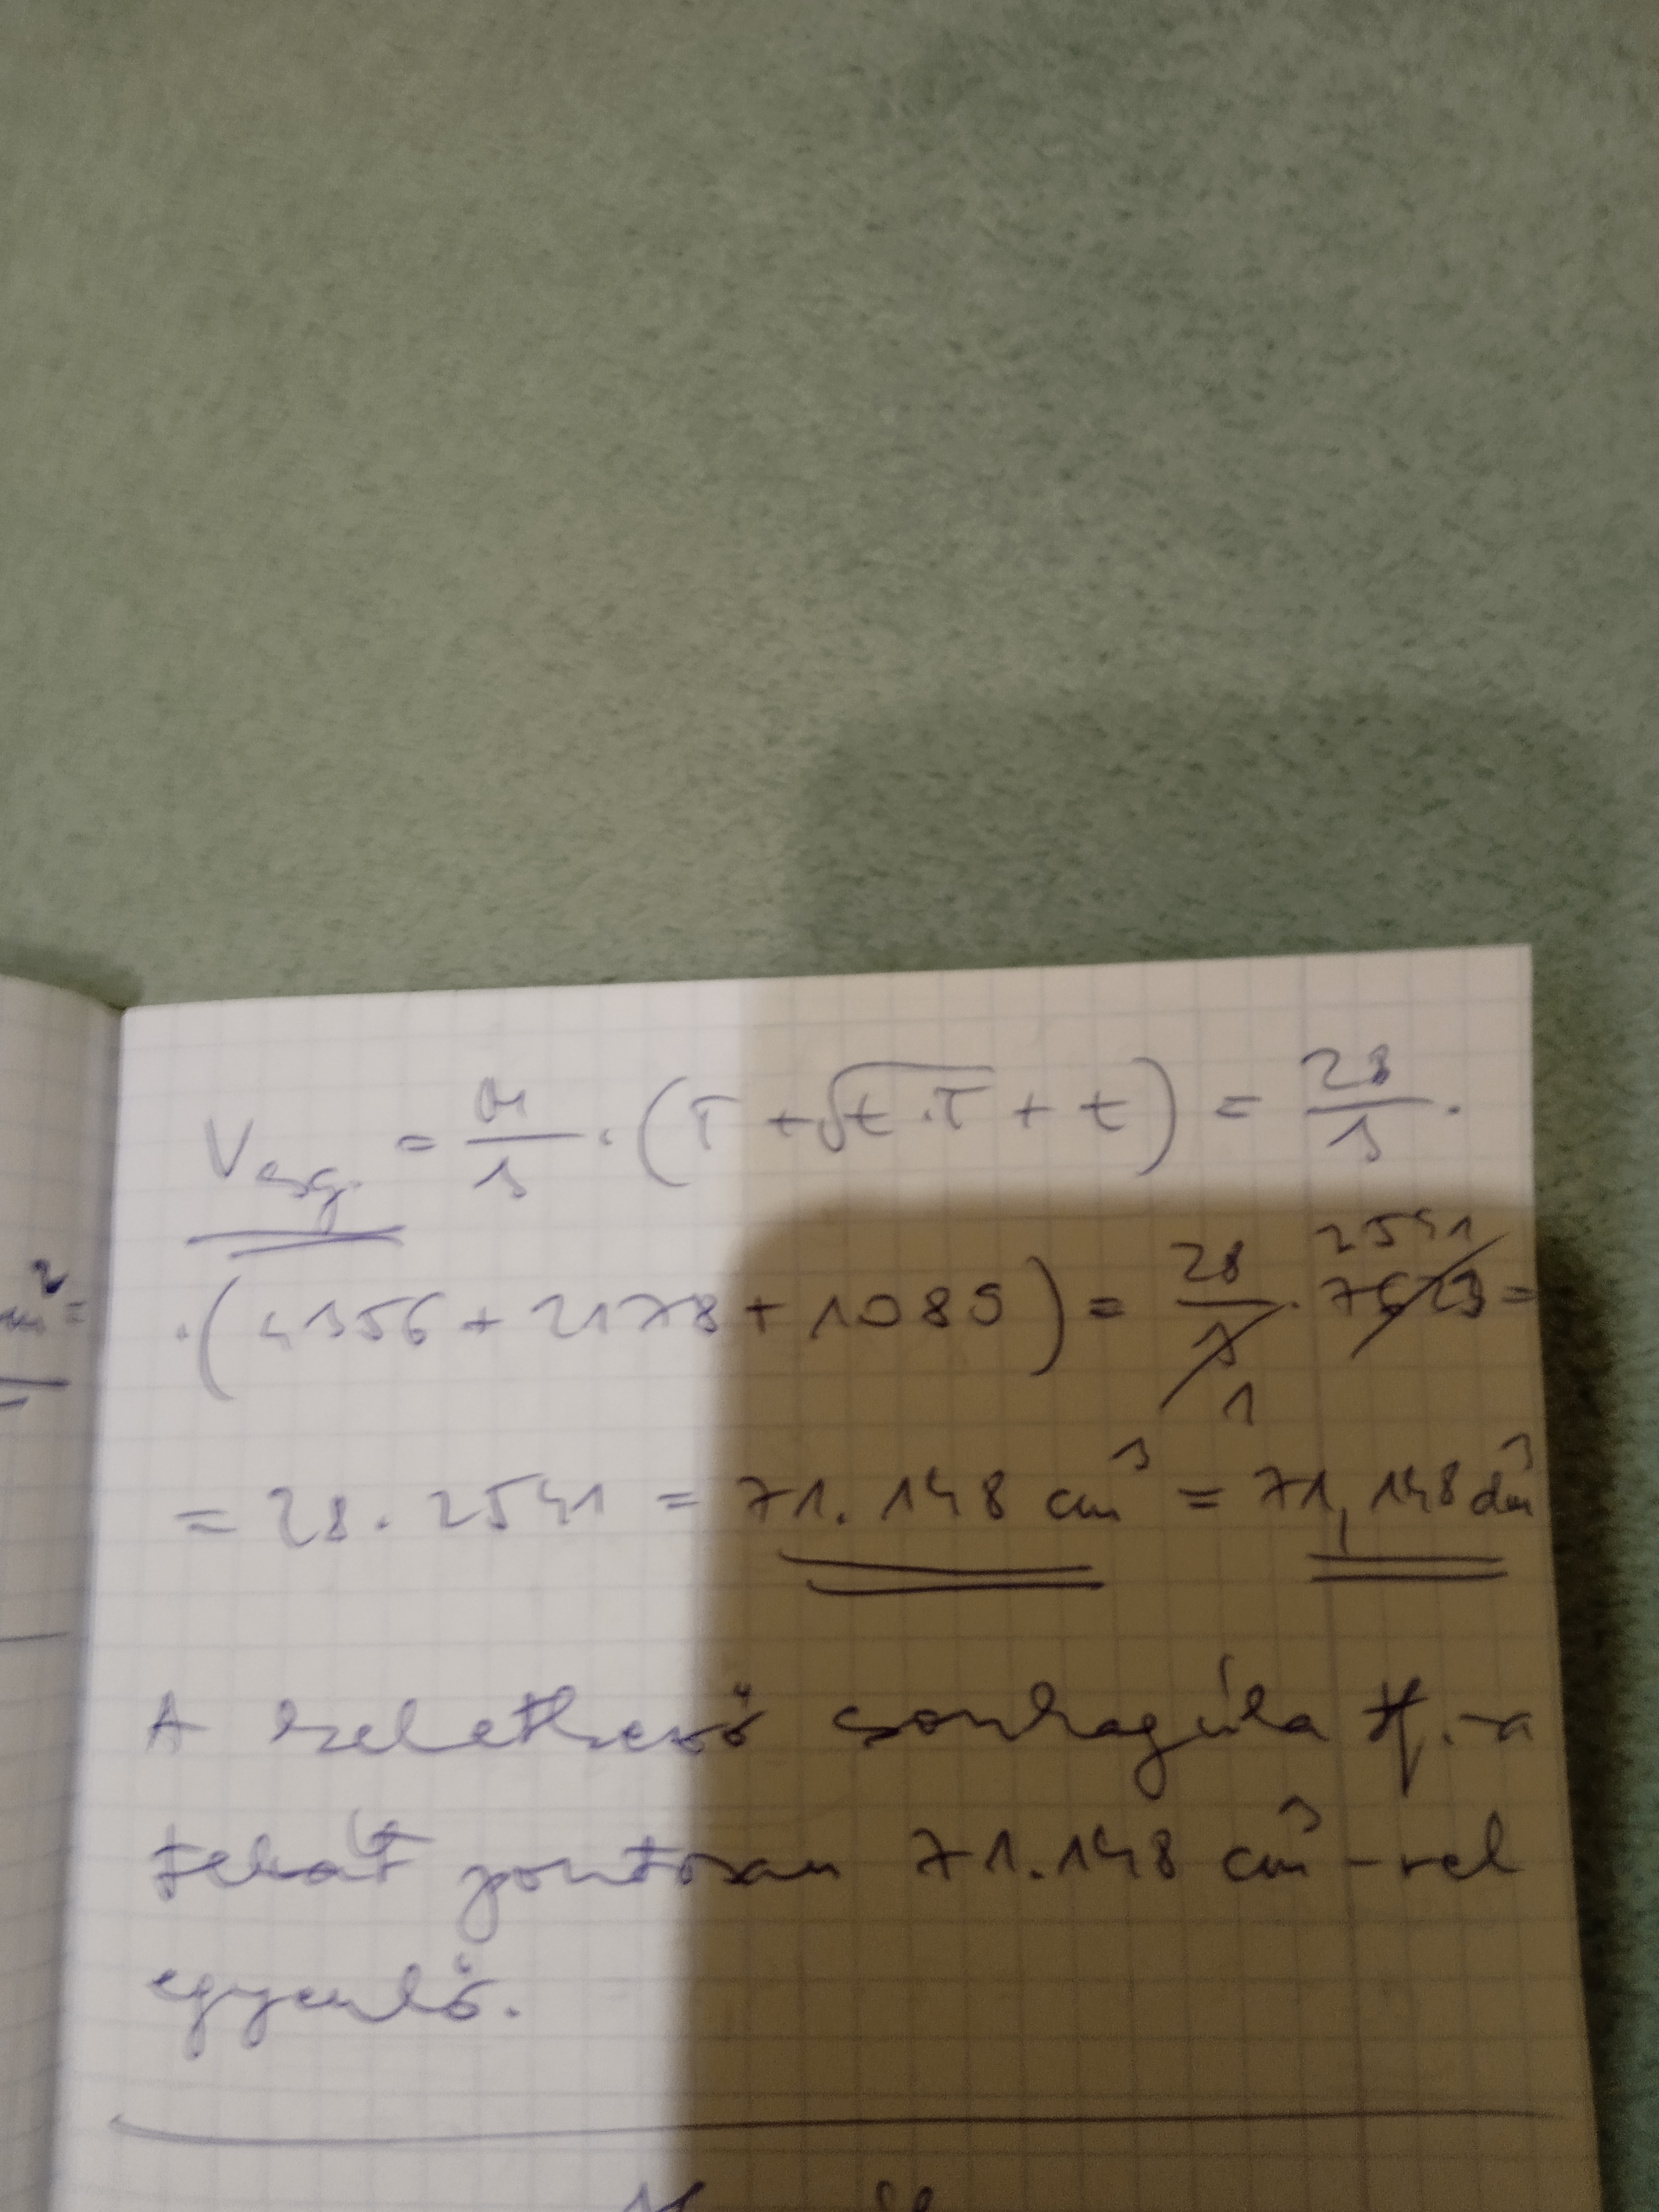 V csg. = m/3 · (T + √(t·T) + t) = 28/3 ·
· (4356 + 2178 + 1089) = 28/3 · 7623 =
2541
1
= 28 · 2541 = 71.148 cm³ = 71,148 dm³
A keletkező csonkagúla tf.-a
tehát pontosan 71.148 cm³-rel
egyenlő.